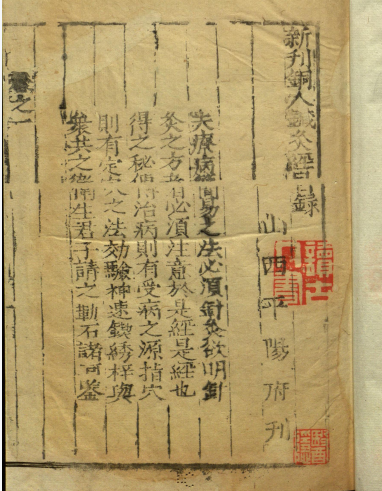 新刊銅人鍼灸經目錄
山西平陽府刊
夫療病簡易之法必須針灸欲明針
灸之方者必須注意於是經是經也
得之秘傳治病則有受病之源指穴
則有定穴之法効驗神速鋟綉梓與
衆共之衛生君子請之
之一